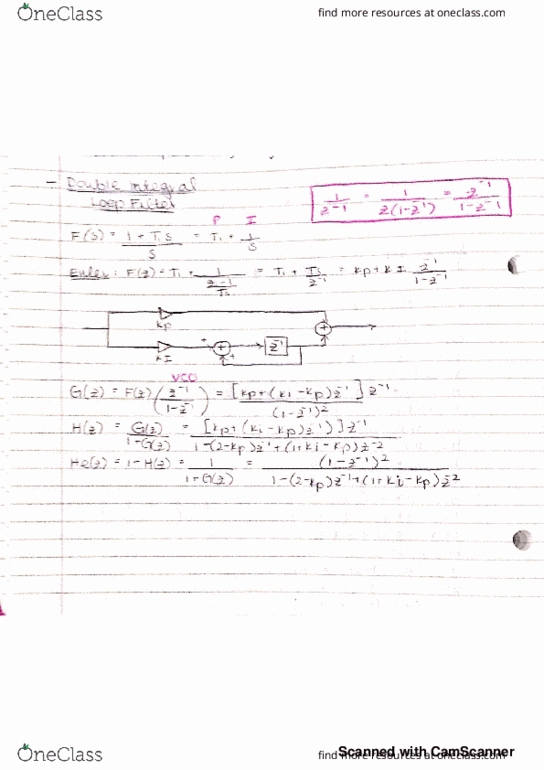 OneClass
find more resources at oneclass.com
- Double integral
Loop Filter
1/(z-1) = 1/(z(1-z⁻¹)) = z⁻¹/(1-z⁻¹)
P I
F(s) = (1+T₁s)/s = T₁ + 1/s
Euler: F(z) = T₁ + 1/((z-1)/Ts) = T₁ + Ts/(z-1) = kp + kI z⁻¹/(1-z⁻¹)
kp
kI + + + z⁻¹ +
VCO
G(z) = F(z) (z⁻¹/(1-z⁻¹)) = [kp+(ki-kp)z⁻¹]z⁻¹/(1-z⁻¹)²
H(z) = G(z)/(1+G(z)) = [kp+(ki-kp)z⁻¹)]z⁻¹/(1-(2-kp)z⁻¹+(1+ki-kp)z⁻²)
He(z) = 1-H(z) = 1/(1+G(z)) = (1-z⁻¹)²/(1-(2-kp)z⁻¹+(1+ki-kp)z⁻²)
OneClass
find more resources at oneclass.com
Scanned with CamScanner